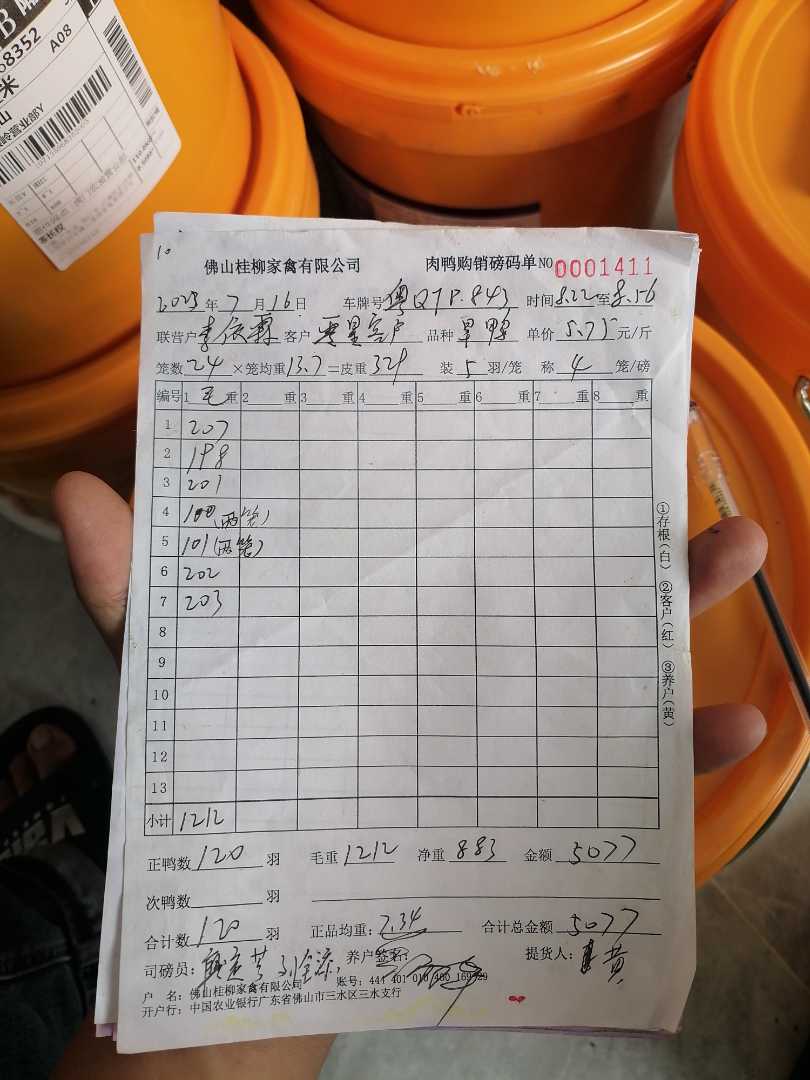 68352
A08
米
山
岭营业部Y
10
佛山桂柳家禽有限公司 肉鸭购销磅码单NO 0001411
2023年7月16日 车牌号 粤QTP.843 时间8.22至8.56
联营户 李依霖 客户 零星客户 品种 旱鸭 单价 5.75 元/斤
笼数 24 ×笼均重 13.7 =皮重 329 装 5 羽/笼 称 4 笼/磅
编号 1 毛 重 2 重 3 重 4 重 5 重 6 重 7 重 8 重
1 207
2 198
3 201
4 100(两笼)
5 101(两笼)
6 202
7 203
8
9
10
11
12
13
小计 1212
①存根(白) ②客户(红) ③养户(黄)
正鸭数 120 羽 毛重 1212 净重 883 金额 5077
次鸭数 羽
合计数 120 羽 正品均重: 7.34 合计总金额 5077
司磅员: 养户签名: 提货人: 黄
户 名: 佛山桂柳家禽有限公司 账号: 441 401 010 400 169 29
开户行: 中国农业银行广东省佛山市三水区三水支行